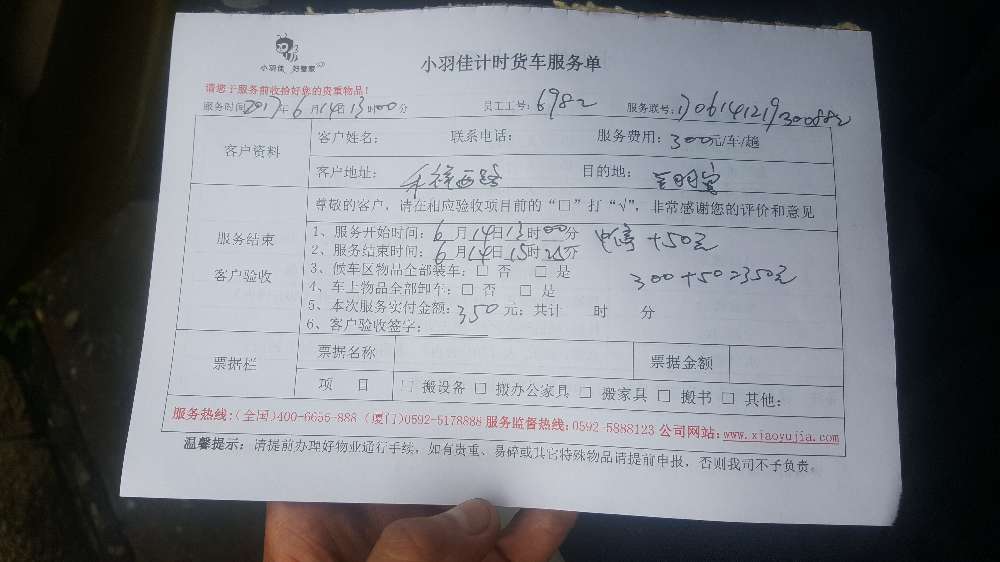 小羽佳 好管家
小羽佳计时货车服务单
请您于服务前收拾好您的贵重物品!
服务时间2017年6月14日13时00分 员工工号:6982 服务联号:1706141219300882
客户资料
客户姓名: 联系电话: 服务费用:300元/车/趟
客户地址:禾祥西路 目的地:
服务结束
客户验收
尊敬的客户,请在相应验收项目前的“□”打“√”,非常感谢您的评价和意见
1、服务开始时间:6月14日13时00分 中停+50元
2、服务结束时间:6月14日15时25分
3、候车区物品全部装车:□ 否 □ 是 300+50=350元
4、车上物品全部卸车:□ 否 □ 是
5、本次服务实付金额:350元;共计 时 分
6、客户验收签字:
票据栏
票据名称 票据金额
项 目 □ 搬设备 □ 搬办公家具 □ 搬家具 □ 搬书 □ 其他:
服务热线:(全国)400-6655-888 (厦门)0592-5178888 服务监督热线:0592-5888123 公司网站:www.xiaoyujia.com
温馨提示:请提前办理好物业通行手续,如有贵重、易碎或其它特殊物品请提前申报,否则我司不予负责。